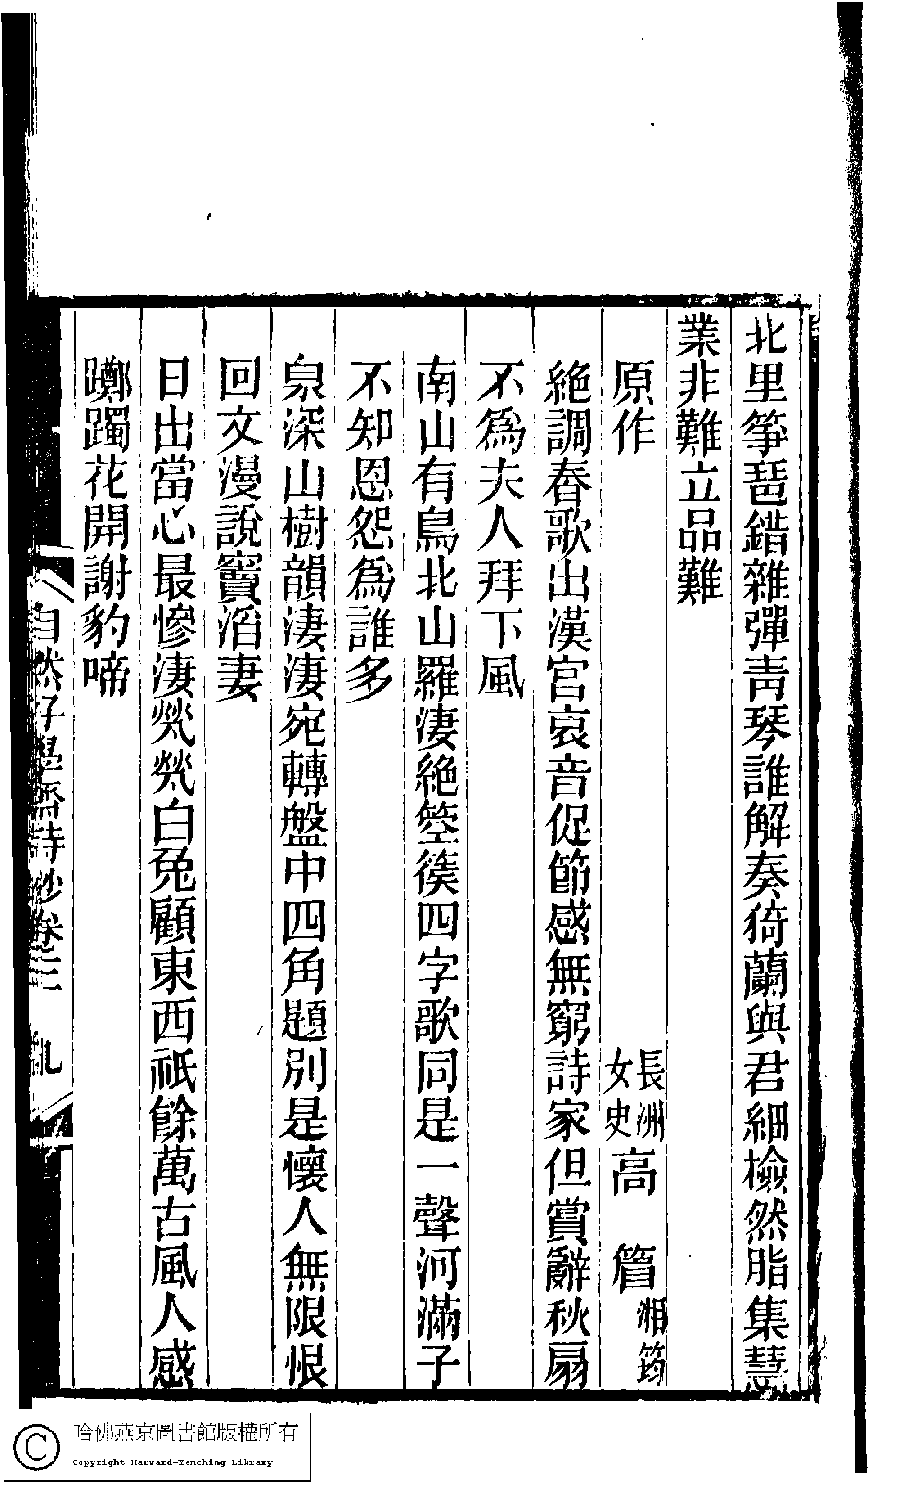 北里筝琶錯雜彈青琴誰解奏猗蘭與君細檢然脂集慧
業非難立品難
原作
長洲女史高篃湘筠
絕調舂歌出漢宮哀音促節感無窮詩家但賞辭秋扇
不爲夫人拜下風
南山有鳥北山羅淒絕箜篌四字歌同是一聲河滿子
不知恩怨爲誰多
泉深山樹韻淒淒宛轉盤中四角題別是懷人無限恨
回文漫說竇滔妻
日出當心最慘淒煢煢白兔顧東西祇餘萬古風人感
躑躅花開謝豹啼
自然好學齋詩鈔卷二
九
哈佛燕京圖書館版權所有
Copyright Harvard-Yenching Library